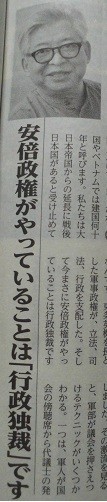 国やベトナムでは建国何十
年と呼びます。私たちは大
日本帝国からの延長に戦後
日本国があると受け止めて
した軍事政権が、立法、司
法、行政を支配した。そし
て今まさに安倍政権がやっ
ていることは行政独裁です
と、軍部が議会を押さえつ
けるテクニックがいくつか
わかる。一つは、軍人が国
会の傍聴席から代議士の発
安倍政権がやっていることは「行政独裁」です